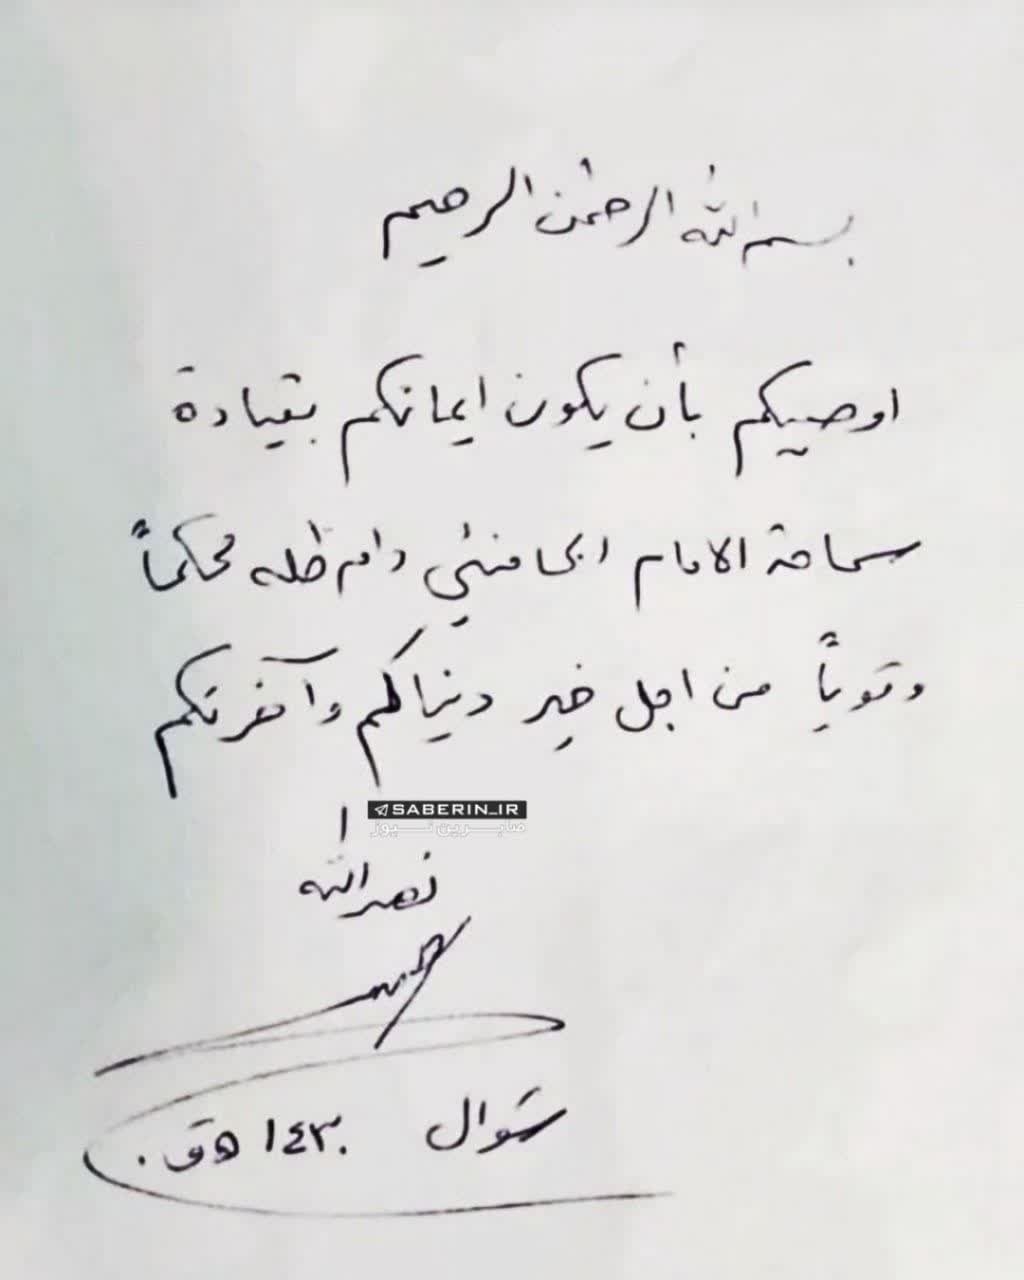 بسم الله الرحمٰن الرحيم
اوصيكم بأن يكون ايمانكم بقيادة
سماحة الامام الخامنئي دام ظله محكماً
وقوياً من اجل خير دنياكم وآخرتكم
SABERIN_IR
صابرین نیوز
نصر الله
شوال ١٤٣٠ هق.